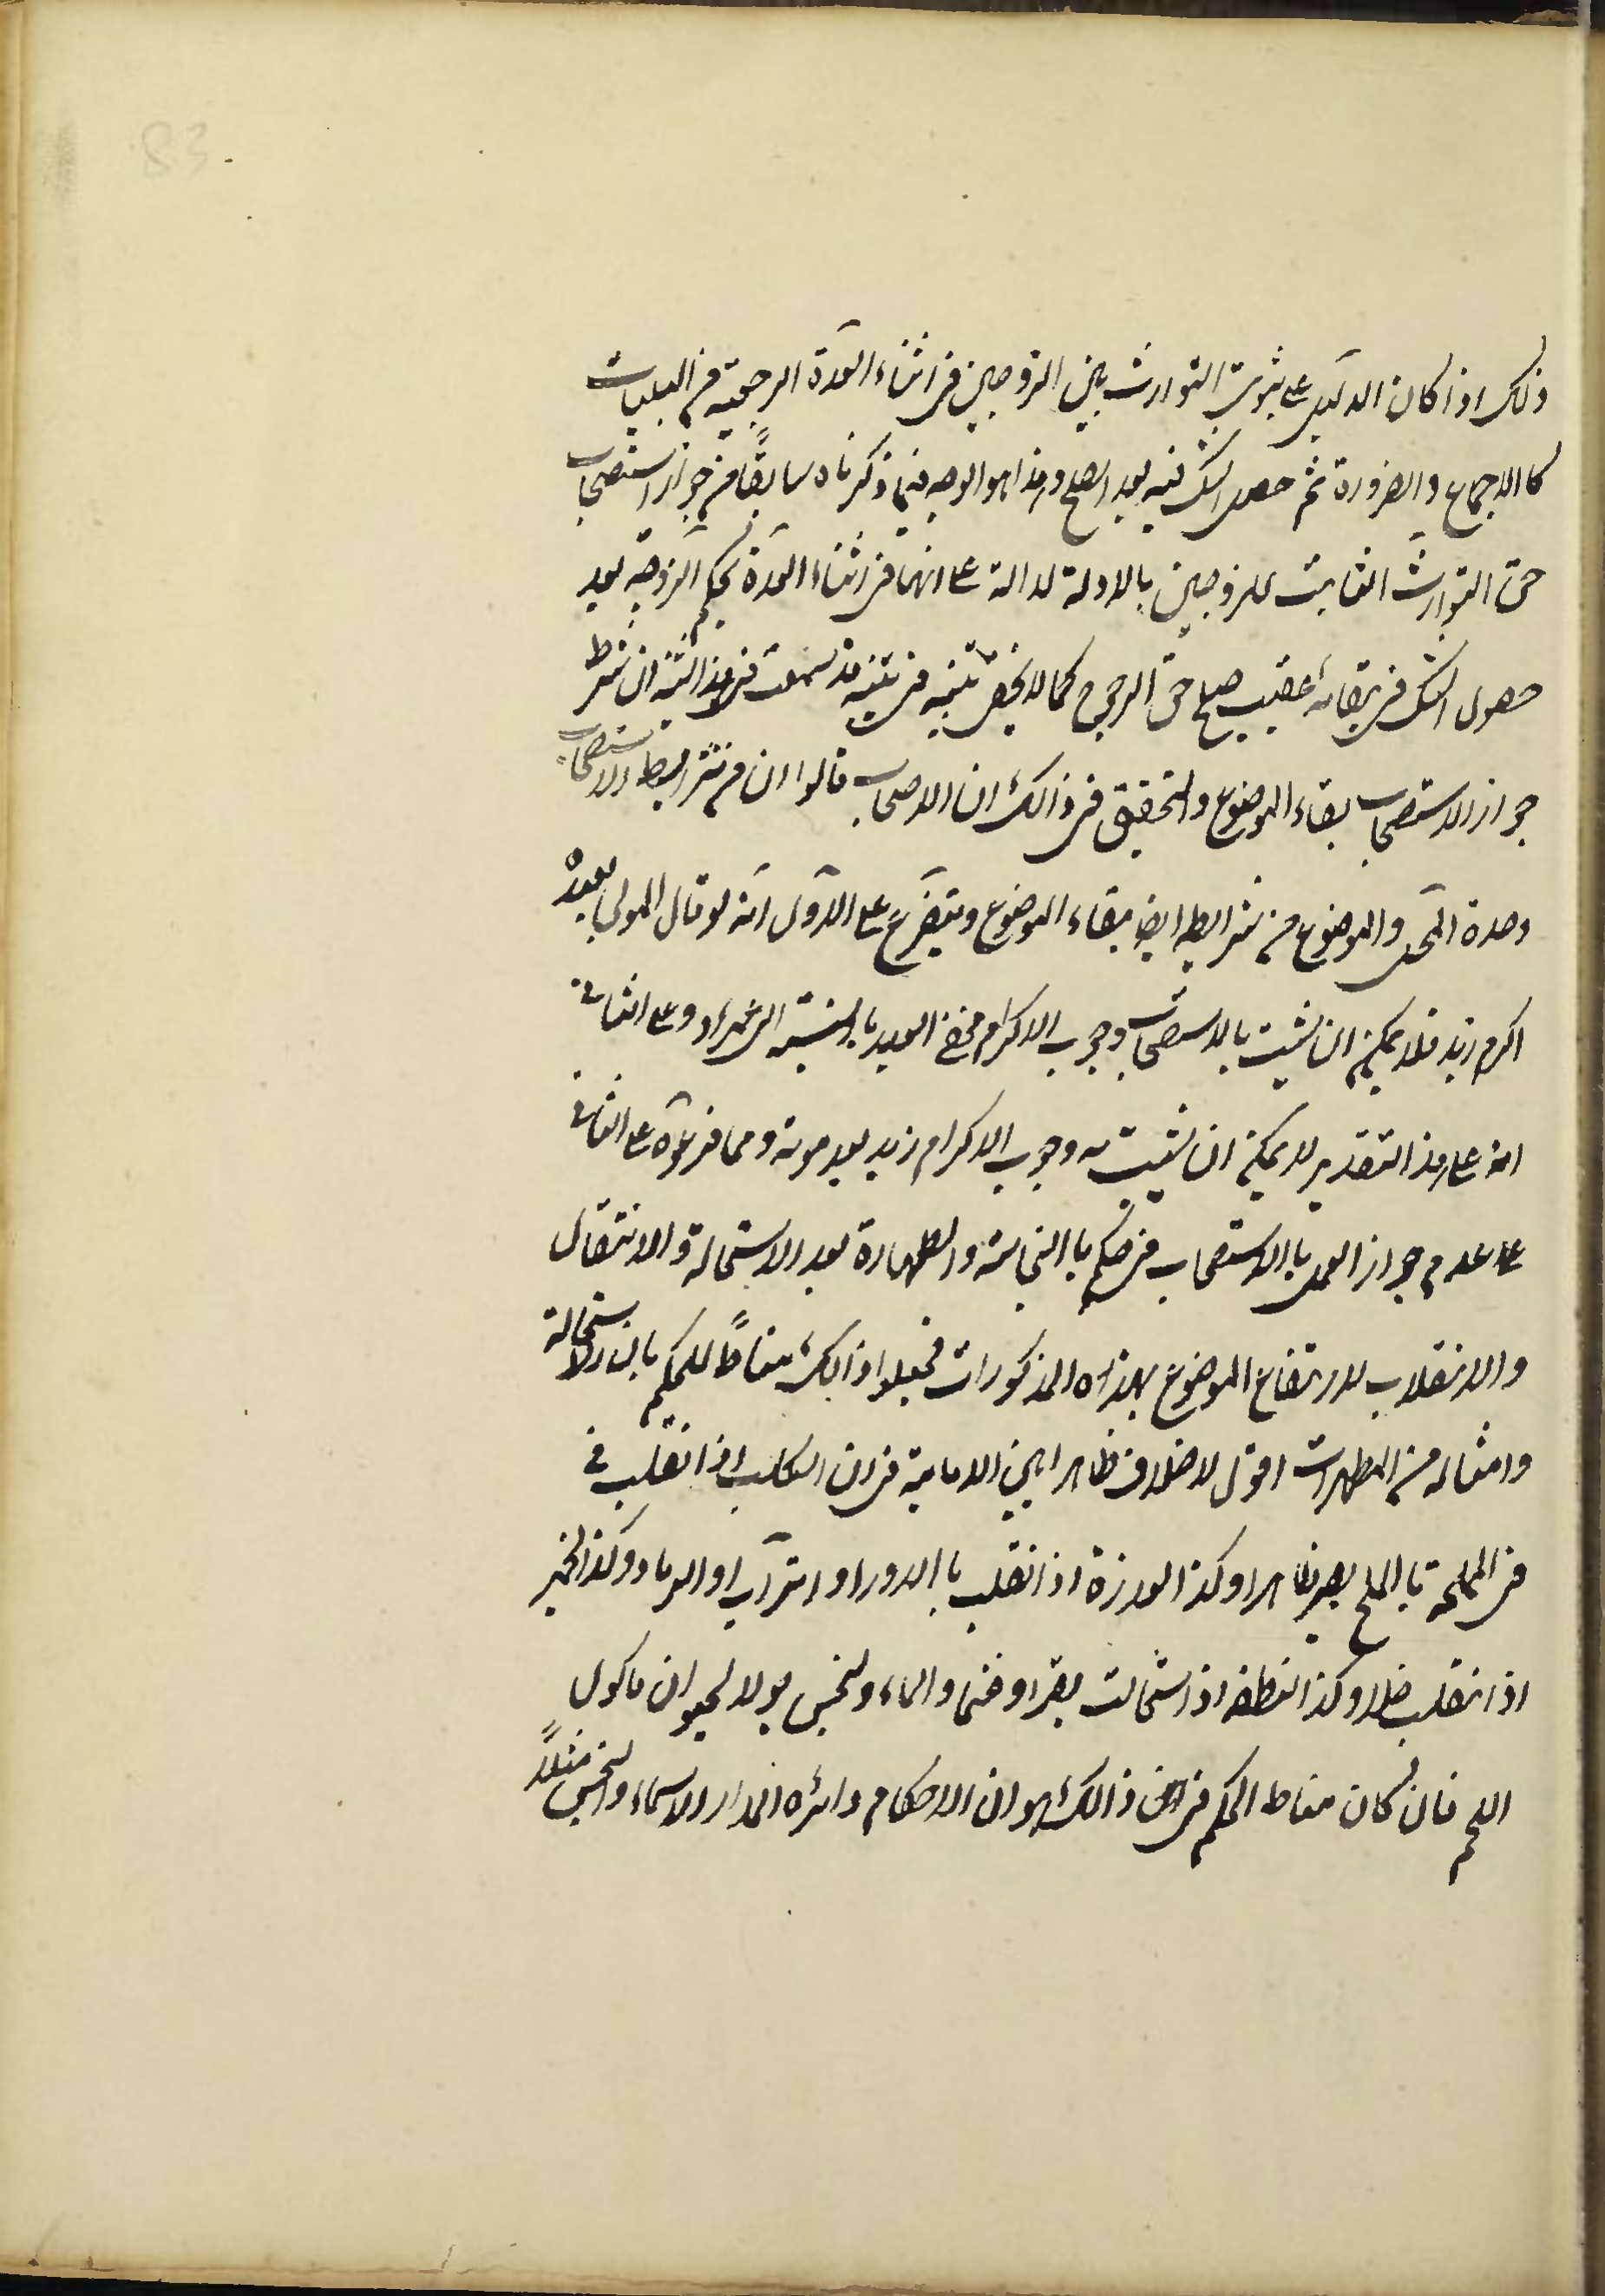 83
ذلك اذا كان الدليل على ثبوت التوارث بين الزوجين فى اثناء العدة الرجعية من اللبيات
كا الاجماع والضرورة ثم حصل الشك فيه بعد الصلح وهذا هو الوجه فيما ذكرناه سابقاً من جواز استصحاب
حق التوارث الثابت للزوجين بالادلة لدالة على انهما فى اثناء العدة بحكم الزوجه بعد
حصول الشك فى بقائه عقيب صلح حق الرجوع كما لا يخفى تنبيه فى تنبيه قد سمعت فى هذا التنبيه ان شرط
جواز الاستصحاب بقاء الموضوع والتحقيق فى ذالك ان الاصحاب قالوا ان من شرايط الاستصحاب
وحدة المحل والموضوع من شرايطه ايضا بقاء الموضوع ويتفرع على الاول انه لو قال المولى لعبده
اكرم زيد فلا يمكن ان يثبت بالاستصحاب وجوب الاكرام فى العبد بالنسبة الى عمرو وعلى الثانى
انه على هذا التقدير لا يمكن ان يثبت به وجوب الاكرام زيد بعد موته ومما فرعوه على الثانى
على عدم جواز العمل باالاستصحاب فى حكم باالنجاسة والطهارة بعد الاستحالة والانتقال
والانقلاب لارتفاع الموضوع بهذه المذكورات فجعلوا ذالك مناطاً للحكم بان الاستحالة
وامثاله من المطهرات اقول لا خلاف ظاهرا بين الامامية فى ان الكلب اذا انقلب فى
فى المملحة باالملح يصير طاهرا وكذا العذرة اذا انقلب باالدود او التراب او الرماد وكذا الخمر
اذا انقلب خلا وكذا النطفة اذا استحالت بقرا وغنما والماء ولنجس بولا لحيوان ماكول
اللحم فان كان مناط الحكم فى ذالك هو ان الاحكام دائره المدار الاسماء والنجس مثلاً